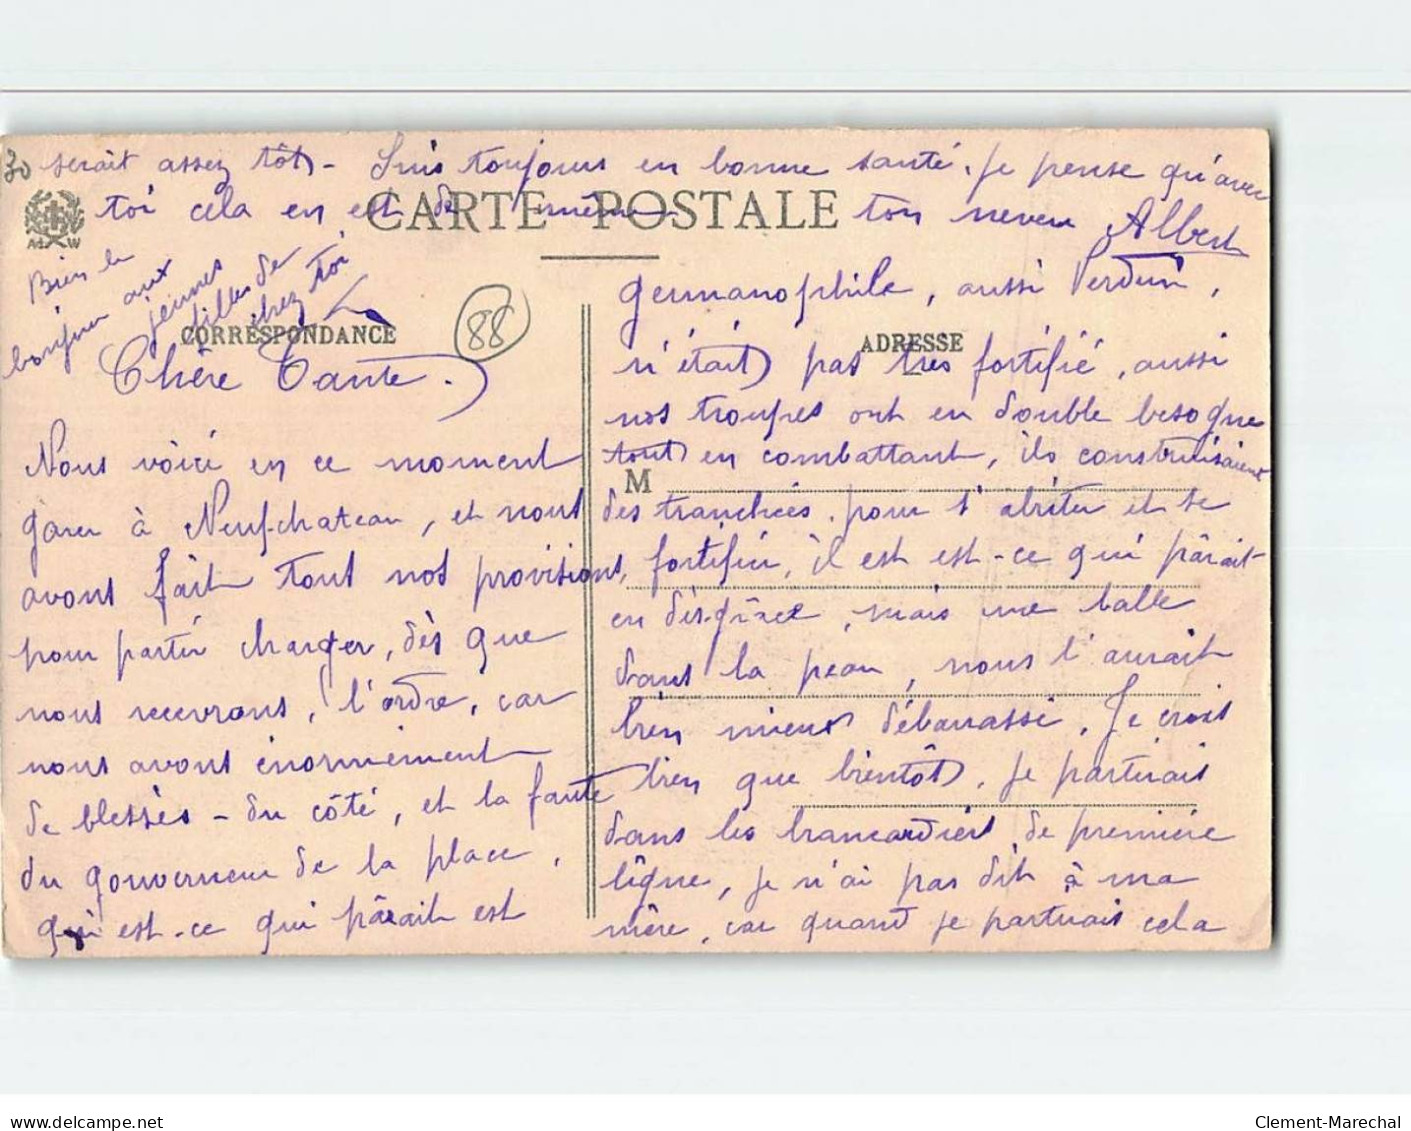 30 serait assez tôt - Suis toujours en bonne santé. Je pense qu'avec
toi cela en est de même ton neveu Albert
CARTE POSTALE
A W
Bien le
bonjour aux
jeunes
filles de
chez toi
CORRESPONDANCE
88
Chère Tante.
Nous voici en ce moment
garer à Neufchateau, et nous
avons fait tout nos provisions,
pour partir charger, dès que
nous recevrons, l'ordre, car
nous avons énormement
de blessès - du côté, et la faute
du gouverneur de la place,
qui est-ce qui pârait est
germanophile, aussi Verdun,
ADRESSE
n'était pas tres fortifié, aussi
nos troupes ont eu double besogne
tout en combattant, ils construisaient
M
des tranchées. pour s'abriter et se
fortifier, il est est-ce qui pârait
en disgrâce, mais une balle
dans la peau, nous l'aurait
bien mieux débarassé. Je crois
bien que bientôt, je partirais
dans les brancardiers de première
ligne, je n'ai pas dit à ma
mère, car quand je partirais cela
www.delcampe.net
Clement-Marechal